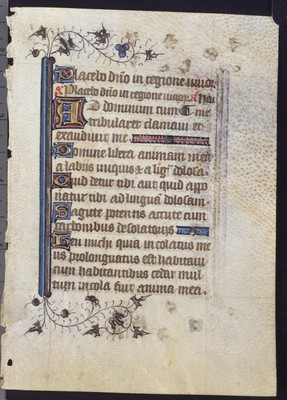 Placebo dño in regione viuoR
Placebo dño in regione viuoR
AD dominum cum t me
tribularer clamaui et
exaudiuit me
Domine libera animam meã
a labiis iniquis & a liga dolosa
Quid detur tibi aut quid appo
natur tibi ad linguã dolosam
Sagitte potentis acute cum
carbonibus desolatoriis
Heu michi quia incolatus me
us prolongatus est habitaui
cum habitantibus cedar mul
tum incola fuit anima mea